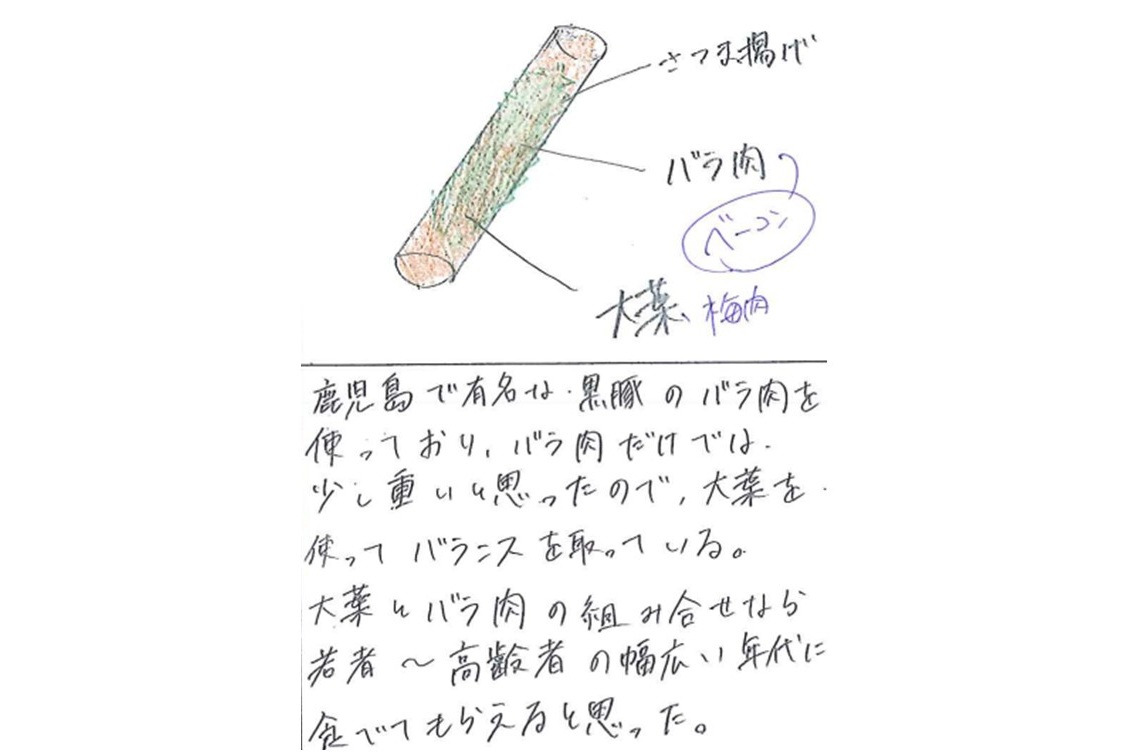 さつま揚げ
バラ肉
ベーコン
大葉、梅肉
鹿児島で有名な黒豚のバラ肉を
使っており、バラ肉だけでは
少し重いと思ったので、大葉を
使ってバランスを取っている。
大葉とバラ肉の組み合せなら
若者〜高齢者の幅広い年代に
食べてもらえると思った。